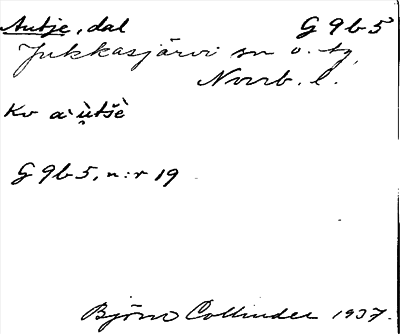 Autje, dal G 9 b 5
Jukkasjärvi sn o. tg,
Norrb. l.
Kv a`u̯tšè
G 9 b 5, n:r 19
Björn Collinder 1937.